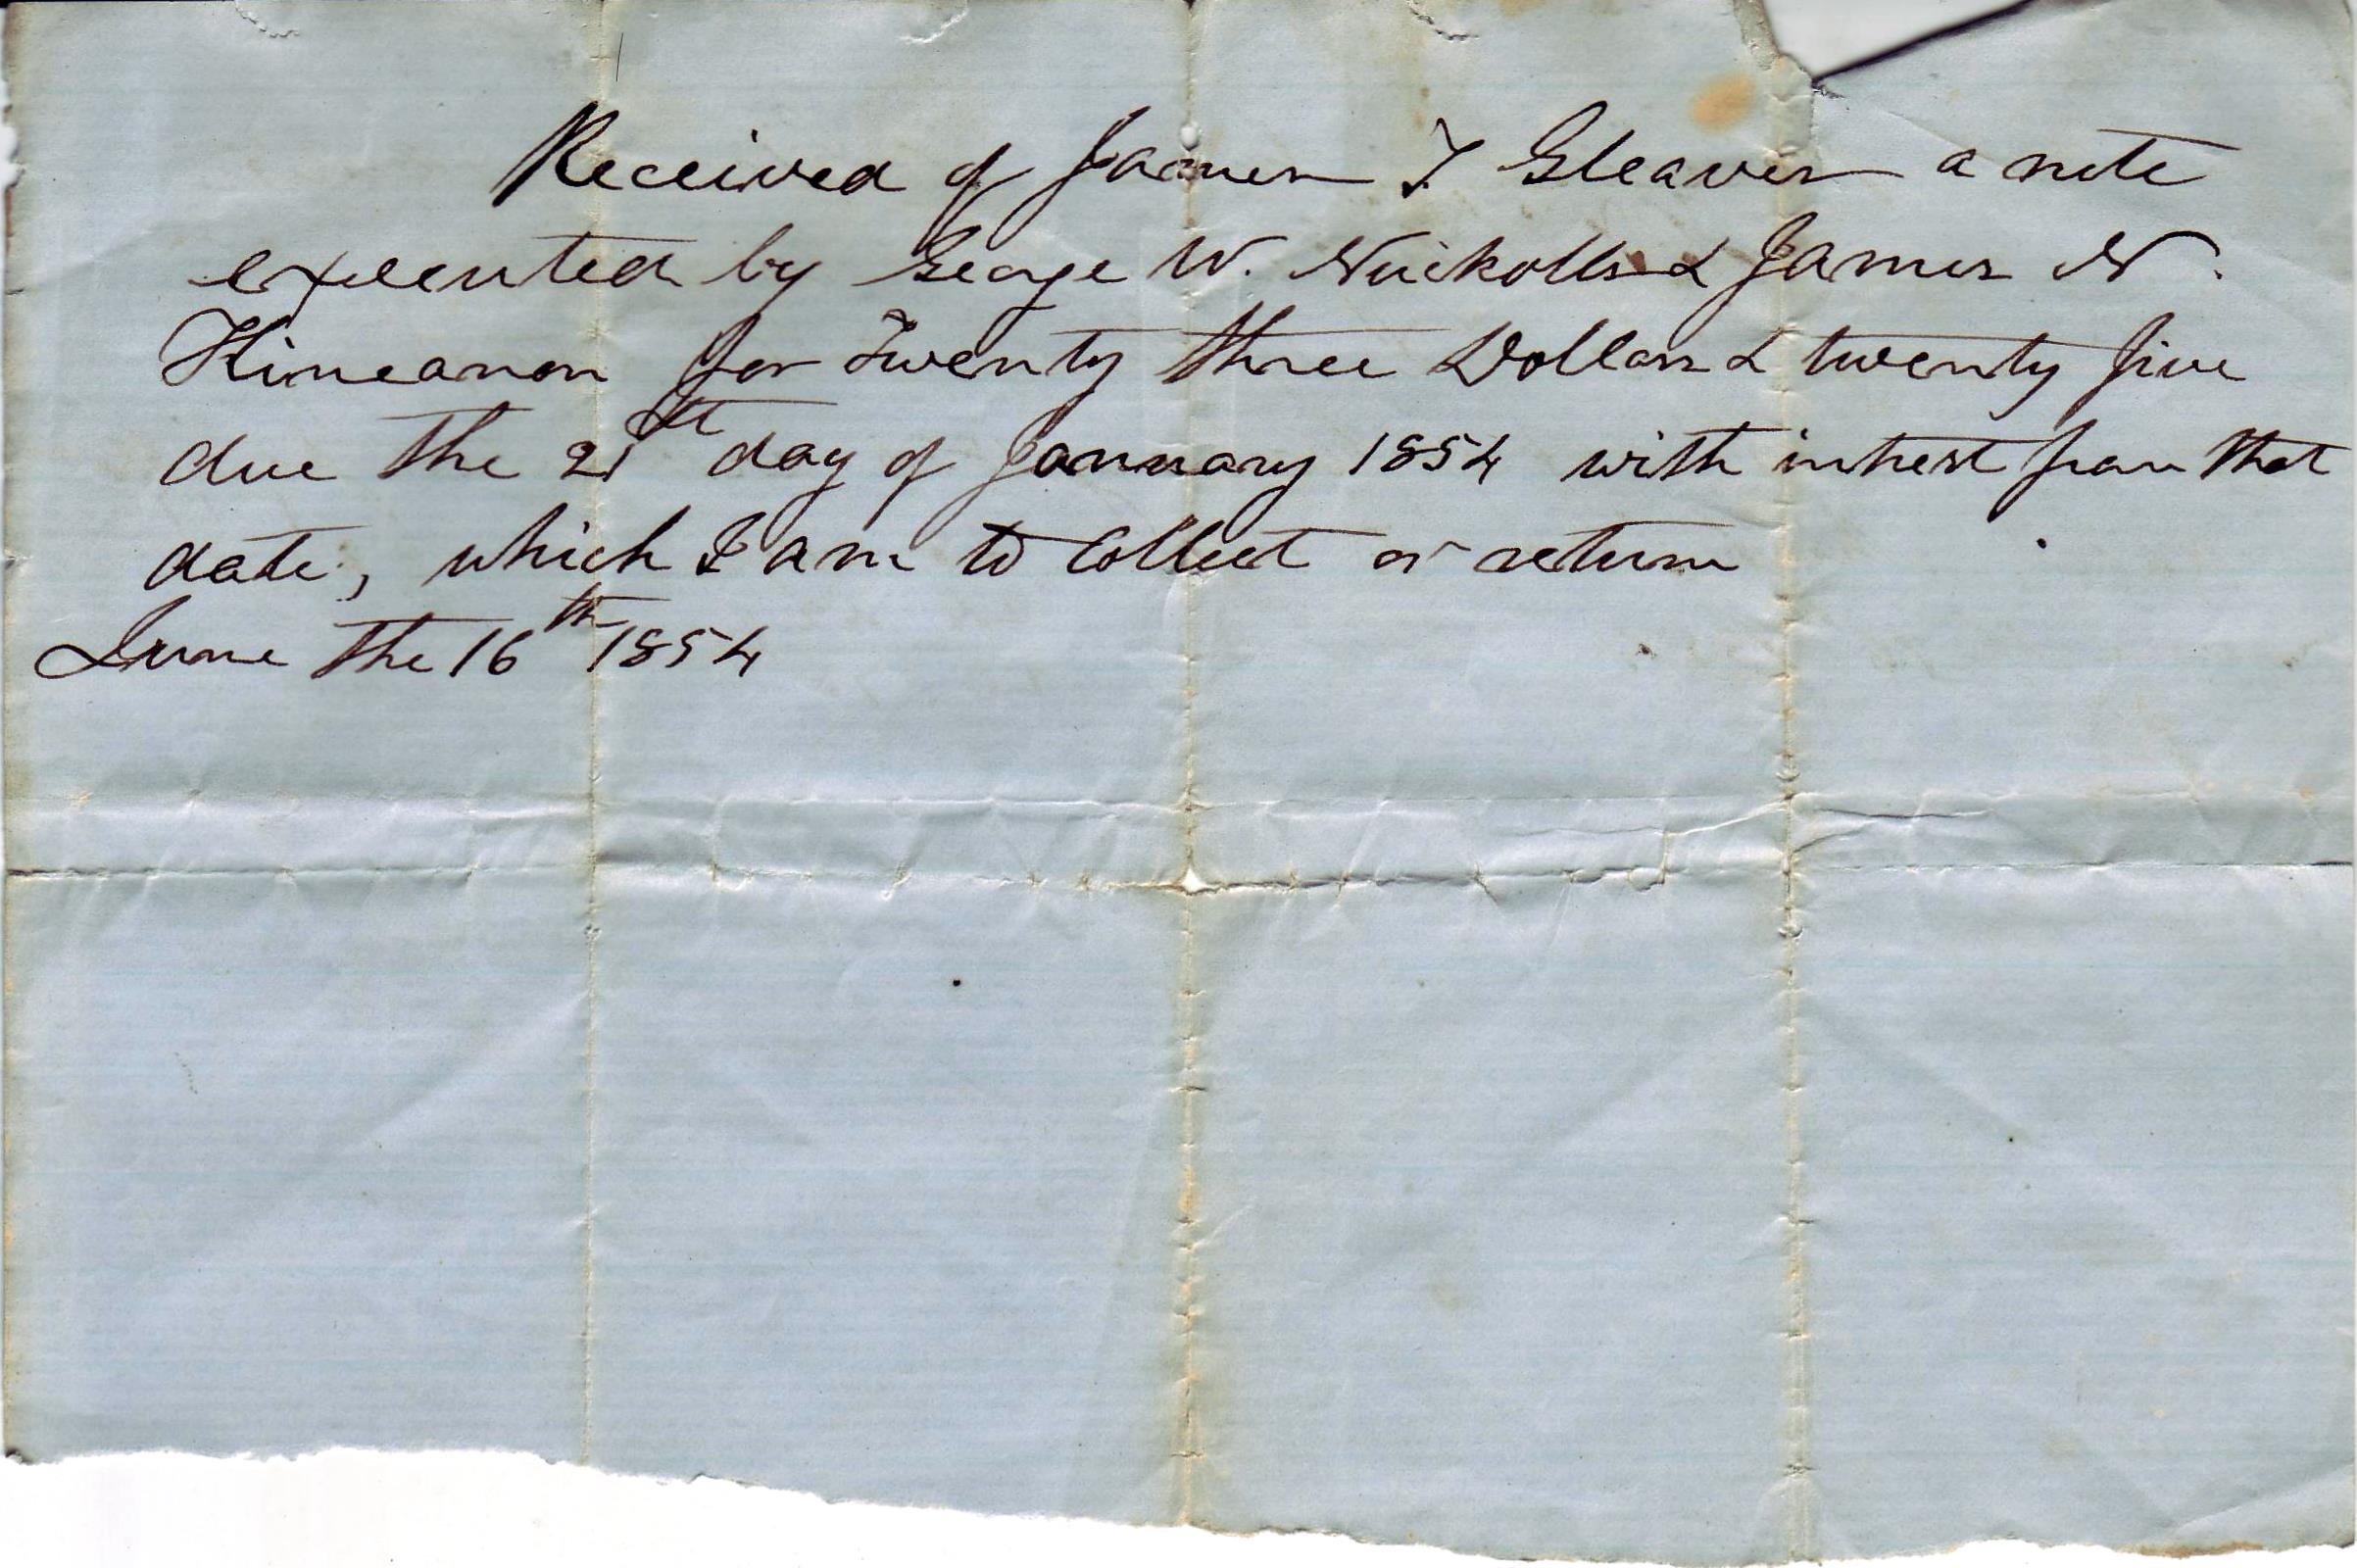 Received of James T Gleaves a note
executed by George W. Nuckolls & James N.
Kincanon for Twenty three Dollars & twenty five
due the 21st day of January 1854 with intrest from that
date, which I am to Collect or return
June the 16th 1854